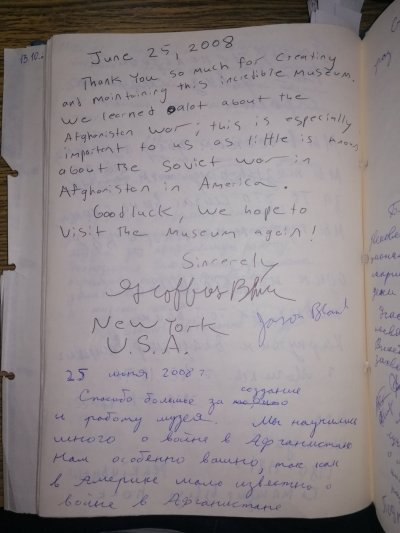 13.10
June 25, 2008
Thank you so much for creating
and maintaining this incredible museum.
We learned alot about the
Afghanistan war; this is especially
important to us as little is known
about the Soviet war in
Afghanistan in America.
Good luck, we hope to
visit the museum again!
Sincerely
New York
U.S.A.
Jason
25 июня 2008 г.
создание
Спасибо большое за
и работу музея. Мы научились
много о войне в Афганистане
Нам особенно важно, так как
в Америке мало известно о
войне в Афганистане